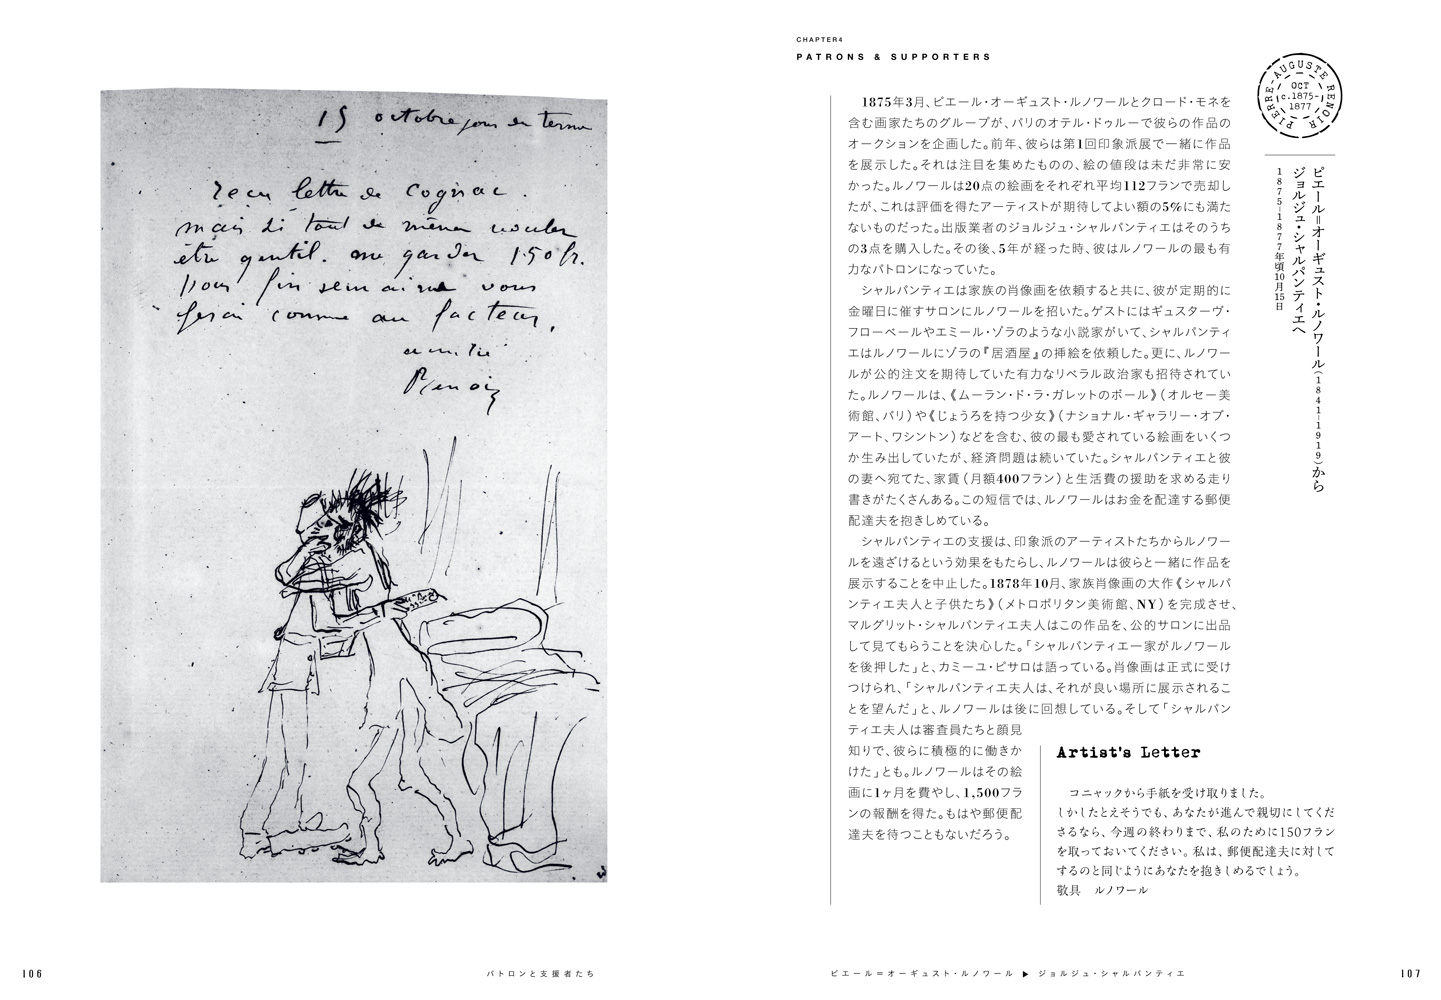 15 octobre jour du terme
reçu lettre de Cognac.
mais si tout de même voulez
être gentil. me garder 150 fr.
pour fin semaine vous
ferai comme au facteur.
amitié
Renoir
106
パトロンと支援者たち
CHAPTER4
PATRONS & SUPPORTERS
PIERRE-AUGUSTE RENOIR
OCT
c.1875-
1877
ピエール=オーギュスト・ルノワール(1841–1919)から
ジョルジュ・シャルパンティエへ
1875–1877年頃10月15日
1875年3月、ピエール・オーギュスト・ルノワールとクロード・モネを
含む画家たちのグループが、パリのオテル・ドゥルーで彼らの作品の
オークションを企画した。前年、彼らは第1回印象派展で一緒に作品
を展示した。それは注目を集めたものの、絵の値段は未だ非常に安
かった。ルノワールは20点の絵画をそれぞれ平均112フランで売却し
たが、これは評価を得たアーティストが期待してよい額の5%にも満た
ないものだった。出版業者のジョルジュ・シャルパンティエはそのうち
の3点を購入した。その後、5年が経った時、彼はルノワールの最も有
力なパトロンになっていた。
シャルパンティエは家族の肖像画を依頼すると共に、彼が定期的に
金曜日に催すサロンにルノワールを招いた。ゲストにはギュスターヴ・
フローベールやエミール・ゾラのような小説家がいて、シャルパンティ
エはルノワールにゾラの『居酒屋』の挿絵を依頼した。更に、ルノワー
ルが公的注文を期待していた有力なリベラル政治家も招待されてい
た。ルノワールは、《ムーラン・ド・ラ・ガレットのボール》(オルセー美
術館、パリ)や《じょうろを持つ少女》(ナショナル・ギャラリー・オブ・
アート、ワシントン)などを含む、彼の最も愛されている絵画をいくつ
か生み出していたが、経済問題は続いていた。シャルパンティエと彼
の妻へ宛てた、家賃(月額400フラン)と生活費の援助を求める走り
書きがたくさんある。この短信では、ルノワールはお金を配達する郵便
配達夫を抱きしめている。
シャルパンティエの支援は、印象派のアーティストたちからルノワー
ルを遠ざけるという効果をもたらし、ルノワールは彼らと一緒に作品を
展示することを中止した。1878年10月、家族肖像画の大作《シャルパ
ンティエ夫人と子供たち》(メトロポリタン美術館、NY)を完成させ、
マルグリット・シャルパンティエ夫人はこの作品を、公的サロンに出品
して見てもらうことを決心した。「シャルパンティエ一家がルノワール
を後押した」と、カミーユ・ピサロは語っている。肖像画は正式に受け
つけられ、「シャルパンティエ夫人は、それが良い場所に展示されるこ
とを望んだ」と、ルノワールは後に回想している。そして「シャルパン
ティエ夫人は審査員たちと顔見
知りで、彼らに積極的に働きか
けた」とも。ルノワールはその絵
画に1ヶ月を費やし、1,500フラ
ンの報酬を得た。もはや郵便配
達夫を待つこともないだろう。
Artist's Letter
コニャックから手紙を受け取りました。
しかしたとえそうでも、あなたが進んで親切にしてくだ
さるなら、今週の終わりまで、私のために150フラン
を取っておいてください。私は、郵便配達夫に対して
するのと同じようにあなたを抱きしめるでしょう。
敬具 ルノワール
ピエール=オーギュスト・ルノワール ▶ ジョルジュ・シャルパンティエ
107